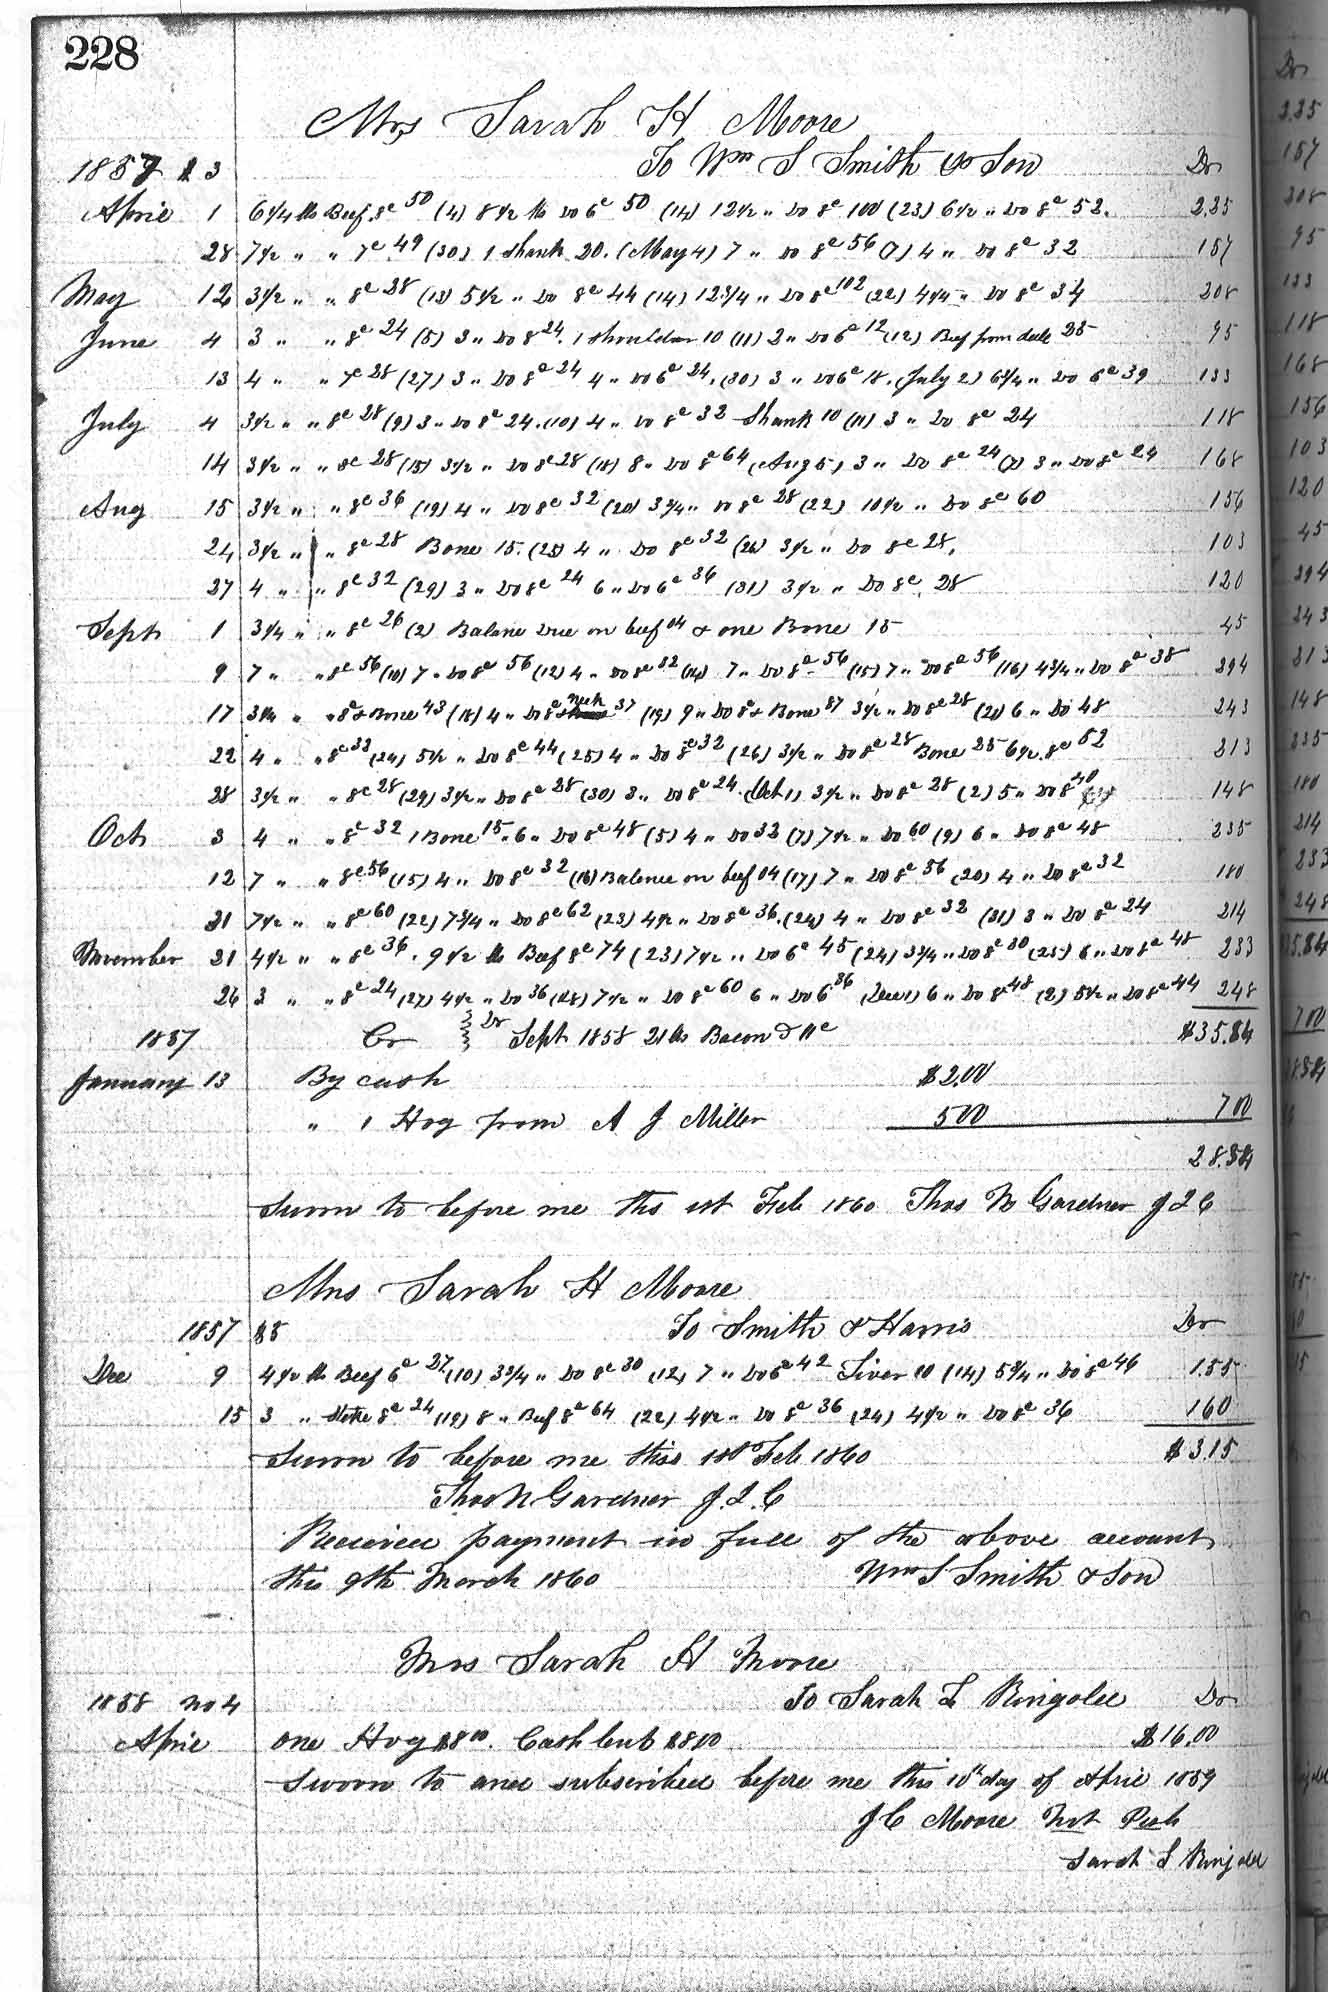 228
Mrs Sarah H Moore
1857 3 To Wm S Smith & Son Dr
April 1 6 1/4 lb Beef 8c 50 (4) 8 1/2 lb Do 6c 50 (14) 12 1/2 " Do 8c 100 (23) 6 1/2 " Do 8c 52. 2.35
28 7 1/2 " " 7c 49 (30) 1 Shank 20. (May 4) 7 " Do 8c 56 (7) 4 " Do 8c 32 157
May 12 3 1/2 " " 8c 28 (13) 5 1/2 " Do 8c 44 (14) 12 3/4 " Do 8c 102 (22) 4 1/4 " Do 8c 34 208
June 4 3 " " 8c 24 (5) 3 " Do 8 24. 1 Shoulder 10 (11) 2 " Do 6c 12 (12) Beef from 25 95
13 4 " " 7c 28 (27) 3 " Do 8c 24 4 " Do 6c 24. (30) 3 " Do 6c 18. (July 2) 6 3/4 " Do 6c 39 133
July 4 3 1/2 " " 8c 28 (9) 3 " Do 8c 24. (10) 4 " Do 8c 32 Shank 10 (11) 3 " Do 8c 24 118
14 3 1/2 " " 8c 28 (15) 3 1/2 " Do 8c 28 (18) 8 " Do 8c 64 (Aug 5) 3 " Do 8c 24 (7) 3 " Do 8c 24 168
Aug 15 3 1/2 " " 8c 36 (19) 4 " Do 8c 32 (20) 3 3/4 " Do 8c 28 (22) 10 1/2 " Do 8c 60 156
24 3 1/2 " " 8c 28 Bone 15. (25) 4 " Do 8c 32 (26) 3 1/2 " Do 8c 28. 103
27 4 " " 8c 32 (29) 3 " Do 8c 24 6 " Do 6c 36 (31) 3 1/2 " Do 8c 28 120
Sept 1 3 1/4 " " 8c 26 (2) Balance due on beef 04 & one Bone 15 45
9 7 " " 8c 56 (10) 7 " Do 8c 56 (12) 4 " Do 8c 32 (14) 7 " Do 8c 56 (15) 7 " Do 8c 56 (16) 4 3/4 " Do 8c 38 294
17 3 1/4 " " 8c & Bone 43 (18) 4 " Do 8c & Neck 37 (19) 9 " Do 8c & Bone 87 3 1/2 " Do 8c 28 (21) 6 " Do 48 243
22 4 " " 8c 32 (24) 5 1/2 " Do 8c 44 (25) 4 " Do 8c 32 (26) 3 1/2 " Do 8c 28 Bone 25 6 1/2 8c 52 213
28 3 1/2 " " 8c 28 (29) 3 1/2 " Do 8c 28 (30) 3 " Do 8c 24. (Oct 1) 3 1/2 " Do 8c 28 (2) 5 " Do 8 40 148
Oct 3 4 " " 8c 32 1 Bone 15. 6 " Do 8c 48 (5) 4 " Do 32 (7) 7 1/2 " Do 60 (9) 6 " Do 8c 48 235
12 7 " " 8c 56 (15) 4 " Do 8c 32 (16) Balance on beef 04 (17) 7 " Do 8c 56 (20) 4 " Do 8c 32 180
21 7 1/2 " " 8c 60 (22) 7 3/4 " Do 8c 62 (23) 4 1/2 " Do 8c 36. (24) 4 " Do 8c 32 (31) 3 " Do 8c 24 214
November 21 4 1/2 " " 8c 36. 9 1/2 lb Beef 8c 74 (23) 7 1/2 " Do 6c 45 (24) 3 3/4 " Do 8c 30 (25) 6 " Do 8c 48 233
26 3 " " 8c 24 (27) 4 1/2 " Do 36 (28) 7 1/2 " Do 8c 60 6 " Do 6 36 (Dec 1) 6 " Do 8c 48 (2) 5 1/2 " Do 8c 44 248
1857 Cr Dr Sept 1858 21 lbs Bacon $35.84
January 13 By cash $2.00
" 1 Hog from A J Miller 500 700
28.84
Sworn to before me this 1st Feb 1860 Thos N Gardner J I C
Mrs Sarah H Moore
1857 $5 To Smith & Harris Dr
Dec 9 4 1/2 lb Beef 6c 27 (10) 3 3/4 " Do 8c 30 (12) 7 " Do 6c 42 Liver 10 (14) 5 3/4 " Do 8c 46 1.55
15 3 " 8c 24 (19) 8 " Beef 8c 64 (22) 4 1/2 " Do 8c 36 (24) 4 1/2 " Do 8c 36 160
Sworn to before me this 1st Feb 1860 $3.15
Thos N Gardner J. I. C
Received payment in full of the above account
this 9th March 1860 Wm S Smith & Son
Mrs Sarah H Moore
1858 no 4 To Sarah L Ringold Dr
April one Hog $8 00. Cash lent $8 00 $16.00
Sworn to and subscribed before me this 10th day of April 1859
J C Moore Not Pub
Sarah L Ringold